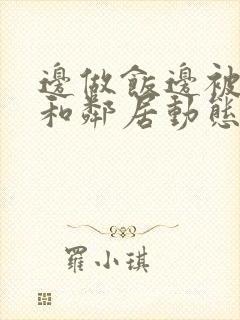 邊做飯邊被
和鄰居動態
羅小琪